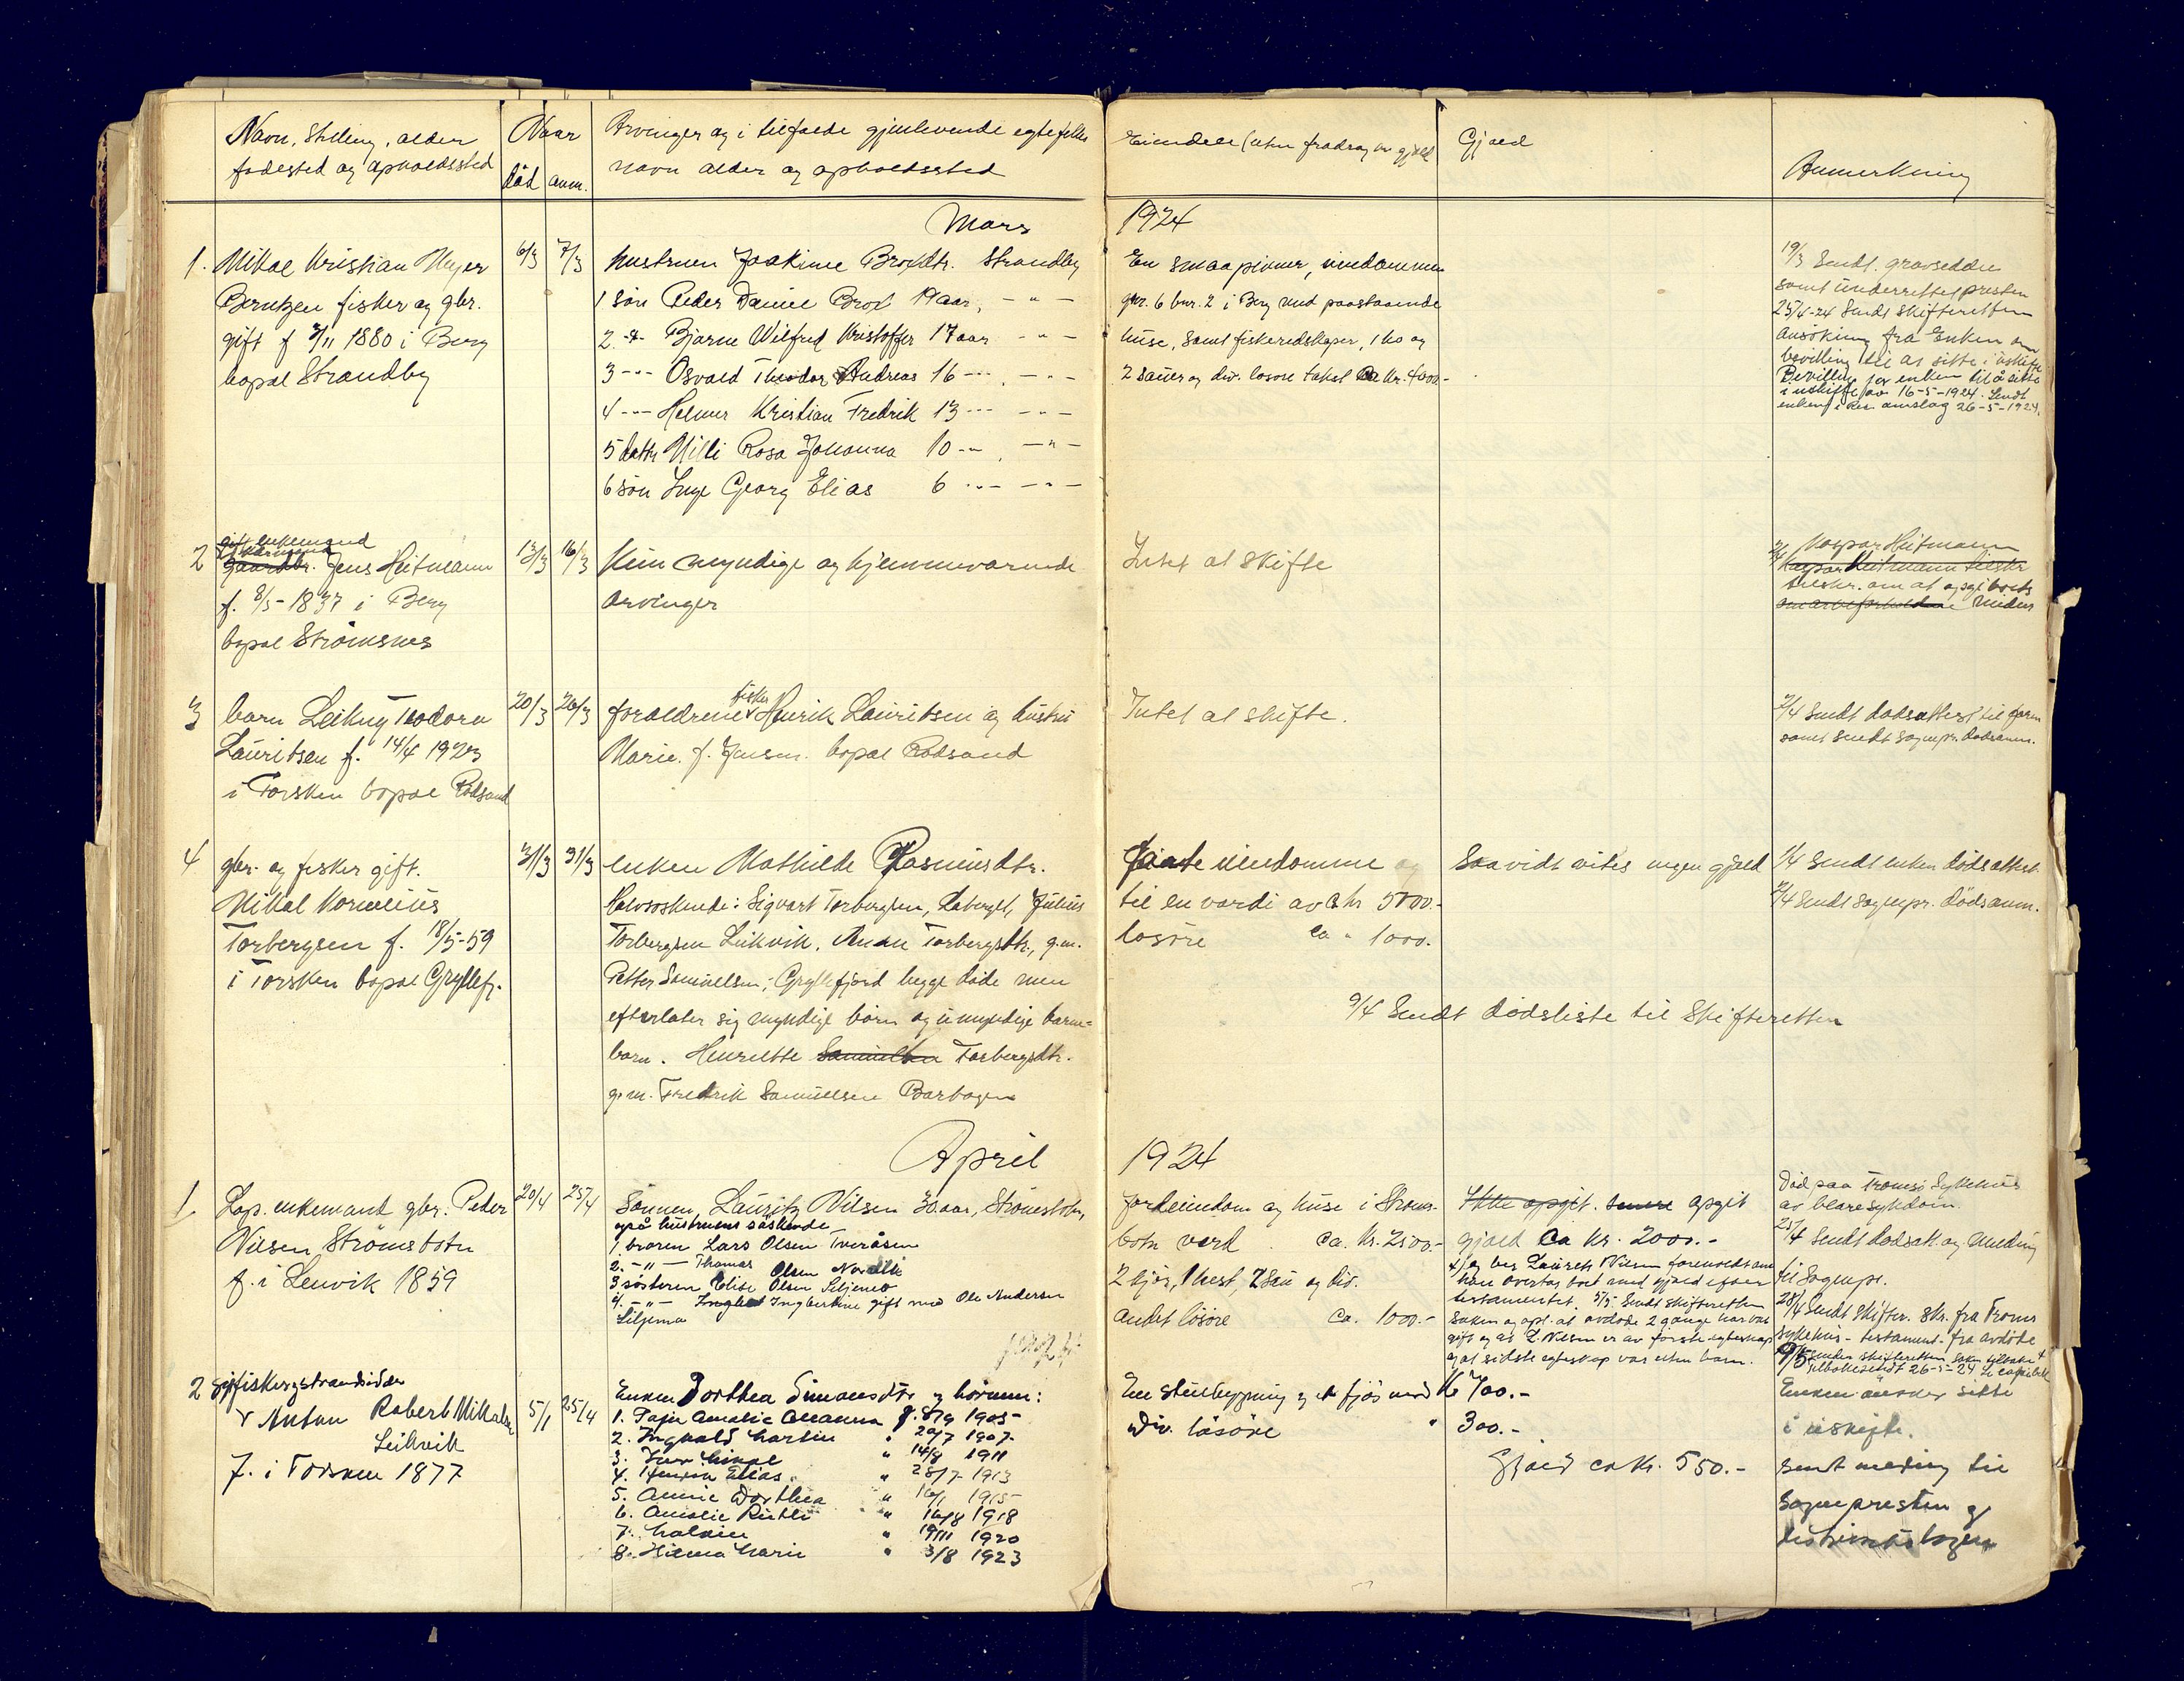 Navn, Stilling, alder
fødested og opholdssted
Naar
død anm.
Arvinger og i tilfælde gjenlevende egtefelles
navn alder og opholdssted
Eiendele (uten fradrag av gjæld
Gjæld
Anmerkning
Mars 1924
1. Mikal Kristian Meyer
Berntzen fisker og gbr.
gift f 3/11 1880 i Berg
bopæl Strandby
6/3 7/3
hustruen Joakime Broxdtr. Strandby
1 søn Peder Daniel Brox 19 aar, - " -
2 -"- Bjarne Wilfred Kristoffer 17 aar - " -
3 -"- Osvald Theodor Andreas 16 -"- . - " -
4 -"- Helmer Kristian Fredrik 13 -"- - " -
5 dattr Milli Rosa Johanna 10 -"- . - " -
6 søn Inge Georg Elias 6 -"- - " -
En smaapioner, eiendommen
gnr. 6 bnr. 2 i Berg med paastaaende
huse, samt fiskeredskaper, 1 ko og
2 sauer og div. løsøre takst Ca kr. 4000.-
19/3 Sendt. gravseddel
samt underrettet presten
25/4-24 Sendt skifteretten
ansøkning fra Enken om
bevilling til at sitte i uskifte
Bevilling for enken til å sitte
i uskifte av 16-5-1924. Sendt
enken i Rek. omslag 26-5-1924.
2 gift enkemand
gaardbr. Jens Heitmann
f. 8/5-1837 i Berg
bopæl Strømsnes
13/3 16/3
Kun myndige og hjemmeværende
arvinger
Intet at skifte
2/4 Kaspar Heitmann
Kaspar Heitmann tilskr
tilskr. om at opgi boets
om arveforholdene Midler
3 barn Leikny Teodora
Lauritsen f. 14/4 1923
i Torsken bopæl Rødsand
20/3 26/3
forældrene fisker Henrik Lauritsen og hustru
Marie. f. Jensen. bopæl Rødsand
Intet at skifte.
2/4 Sendt dødsattest til faren
samt sendt sognepr. dødsanm.
4 gbr. og fisker gift.
Mikal Kornelius
Torbergsen f. 18/5-59
i Torsken bopæl Gryllefj.
31/3 31/3
enken Mathilde Rasmusdtr.
Halvsøskende: Sigvart Torbergsen, Laberget, Julius
Torbergsen Leikvik, Anna Torbergsdtr., g.m.
Petter Samuelsen, Gryllefjord begge døde men
efterlater sig myndige børn og umyndige barne-
barn. Henriette Samuelsen Torbergsdtr.
g.m. Fredrik Samuelsen Barbogen
Faste eiendomme og
til en værdi av Ca kr 5000.-
løsøre Ca " 1000.-
Saavidt vites ingen gjæld
1/4 Sendt enken dødsattest
2/4 Sendt sognepr. dødsanm.
9/4 Sendt dødsliste til Skifteretten
April 1924
1. Lap. enkemand gbr. Peder
Nilsen Strømsbotn
f. i Lenvik 1859
20/4 25/4
Sønnen, Lauritz Nilsen 30 aar, Strømsbotn,
også hustruens søskende
1. broren Lars Olsen Tveråsen
2. - " - Thomas Olsen Nordlk
3 søsteren Elise Olsen Siljenes
4. - " - Ingbertine gift med Ole Andersen
Siljenes
Jordeiendom og huse i Strøms-
botn verd Ca. Kr. 2500.-
2 kjør, 1 hest, 7 Sau og div.
andet løsøre Ca. 1000.-
Ikke opgit. senere opgit
gjæld Ca Kr. 2000.-
x) og ber Laurits Nilsen forholdt om
han overtar boet med gjæld efter
testamentet. 5/5 Sendt skifteretten
saken og opl. at avdøde 2 gange har vært
gift og at L. Nilsen er av første egteskap
og at sidste egteskap var uten barn.
Død paa Tromsø Sykehus
av blæresykdom.
25/4 Sendt dødsatt. og melding
til Sognepr.
28/4 Sendt Skifter. Skr. fra Troms
sykehus - testament - fra avdøde
9/5 sender skifteretten saken tilbake x
2 gift fisker og strandsidder
Anton Robert Mikalsen
Leikvik
f. i Torsken 1877
5/1 25/4
Enken Dorthea Simonsdtr og børnene:
1. Paje Amalie Marianna f. 8/9 1905
2. Ingvald Martin " 20/7 1907.
3. Ivar Mikal " 14/8 1911
4. Henrik Elias. " 28/7 1913
5. Annie Dorthea " 16/1 1915
6. Amalie " 16/8 1918
7. Malvin " 19/11 1920
8. Hilma Marie " 3/8 1923
En stuebygning og et fjøs verd Kr 700.-
Div. løsøre " 300.-
Gjæld ca Kr. 550.-
Enken ønsker sitte
i uskifte.
Sendt melding til
Sognepresten og